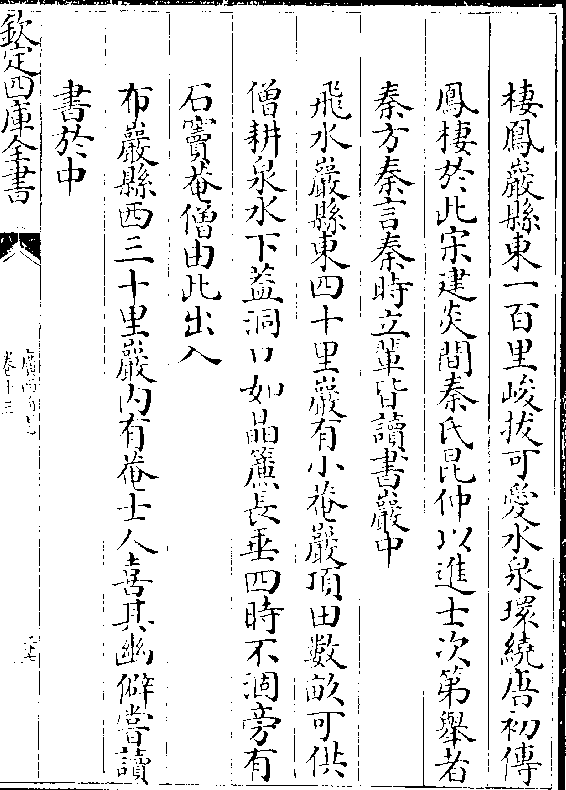 棲鳳巖縣東一百里峻拔可愛水泉環繞唐初傳
鳳棲於此宋建炎間秦氏昆仲以進士次第舉者
秦方秦言秦時立輩皆讀書巖中
飛水巖縣東四十里巖有小菴巖項田數畝可供
僧耕泉水下益洞口如晶簾長垂四時不涸旁有
石竇菴僧由此出入
布巖縣西三十里巖内有菴士人喜其幽僻嘗讀
書於中
欽定四庫全書
廣西通志
卷十三